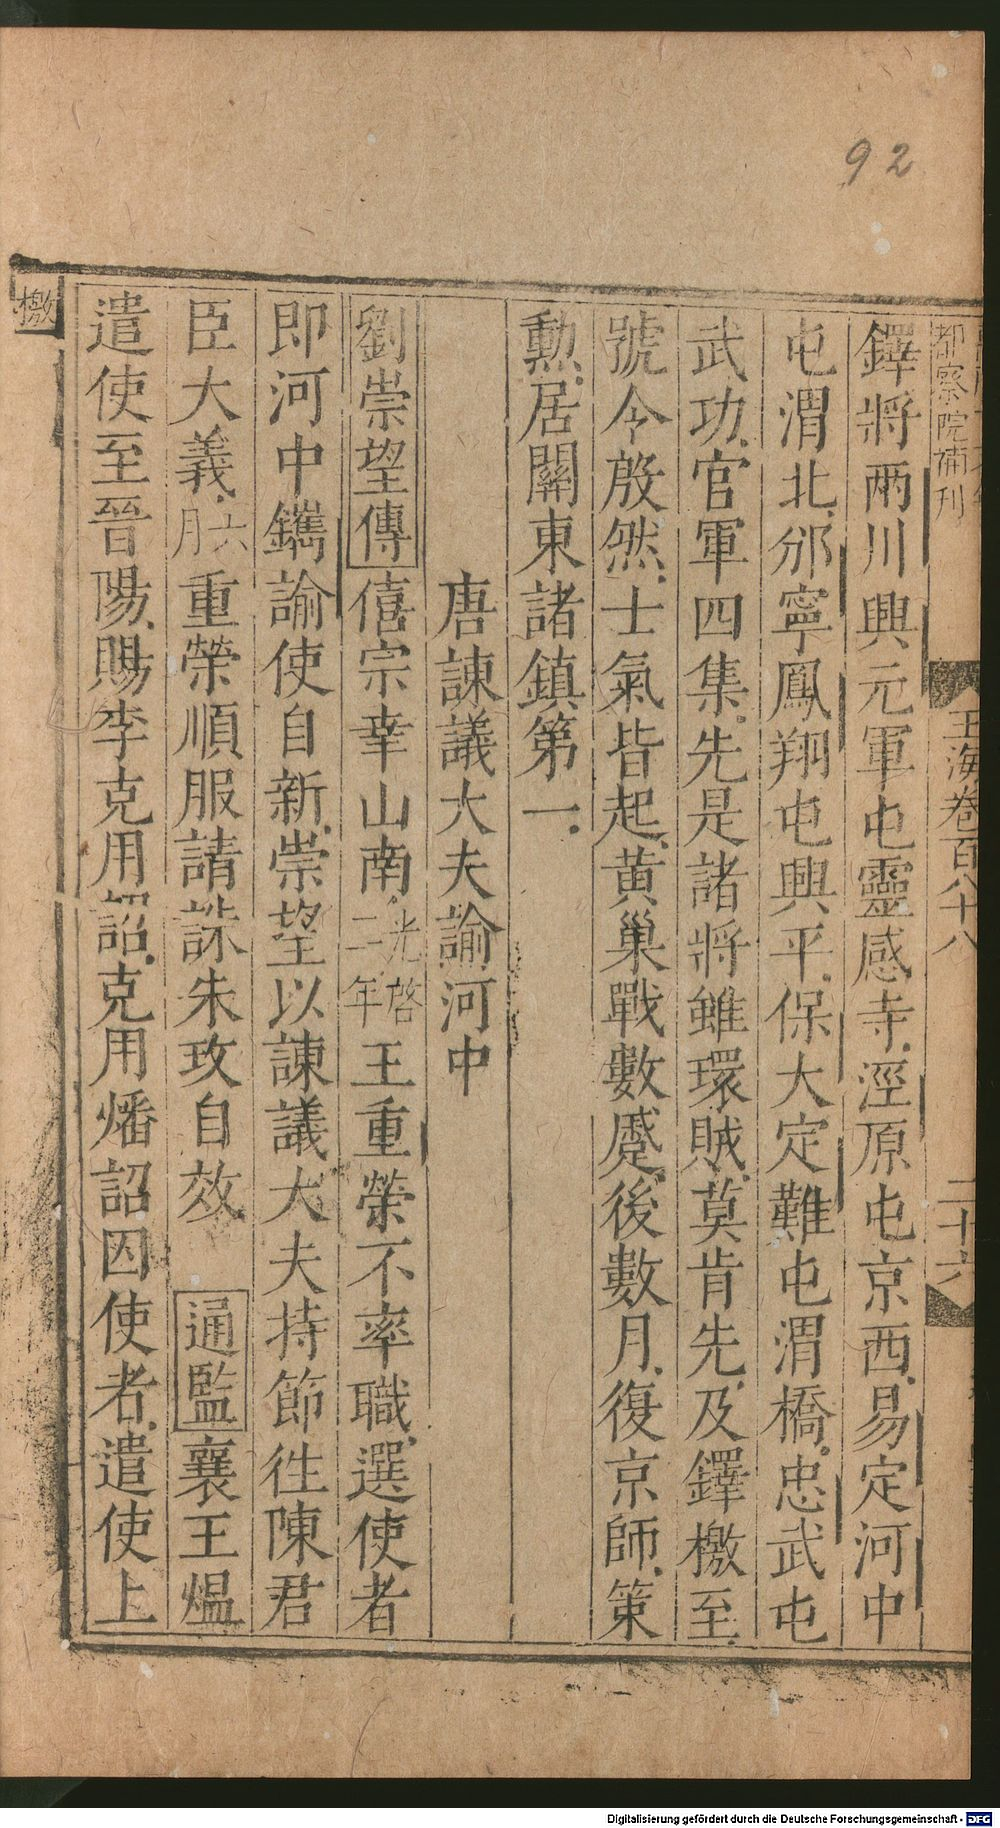 92
都察院補刊
玉海卷百八十八
二十六
鐸將兩川興元軍屯靈感寺涇原屯京西易定河中
屯渭北邠寧鳳翔屯興平保大定難屯渭橋忠武屯
武功官軍四集先是諸將雖環賊莫肯先及鐸檄至
號令殷然士氣皆起黃巢戰數蹙後數月復京師策
勳居關東諸鎮第一
唐諫議大夫諭河中
劉崇望傳僖宗幸山南光啓二年王重榮不率職選使者
即河中鐫諭使自新崇望以諫議大夫持節往陳君
臣大義六月重榮順服請誅朱玫自效 通監襄王熅
遣使至晉陽賜李克用詔克用燔詔囚使者遣使上
檄
Digitalisierung gefördert durch die Deutsche Forschungsgemeinschaft - DFG